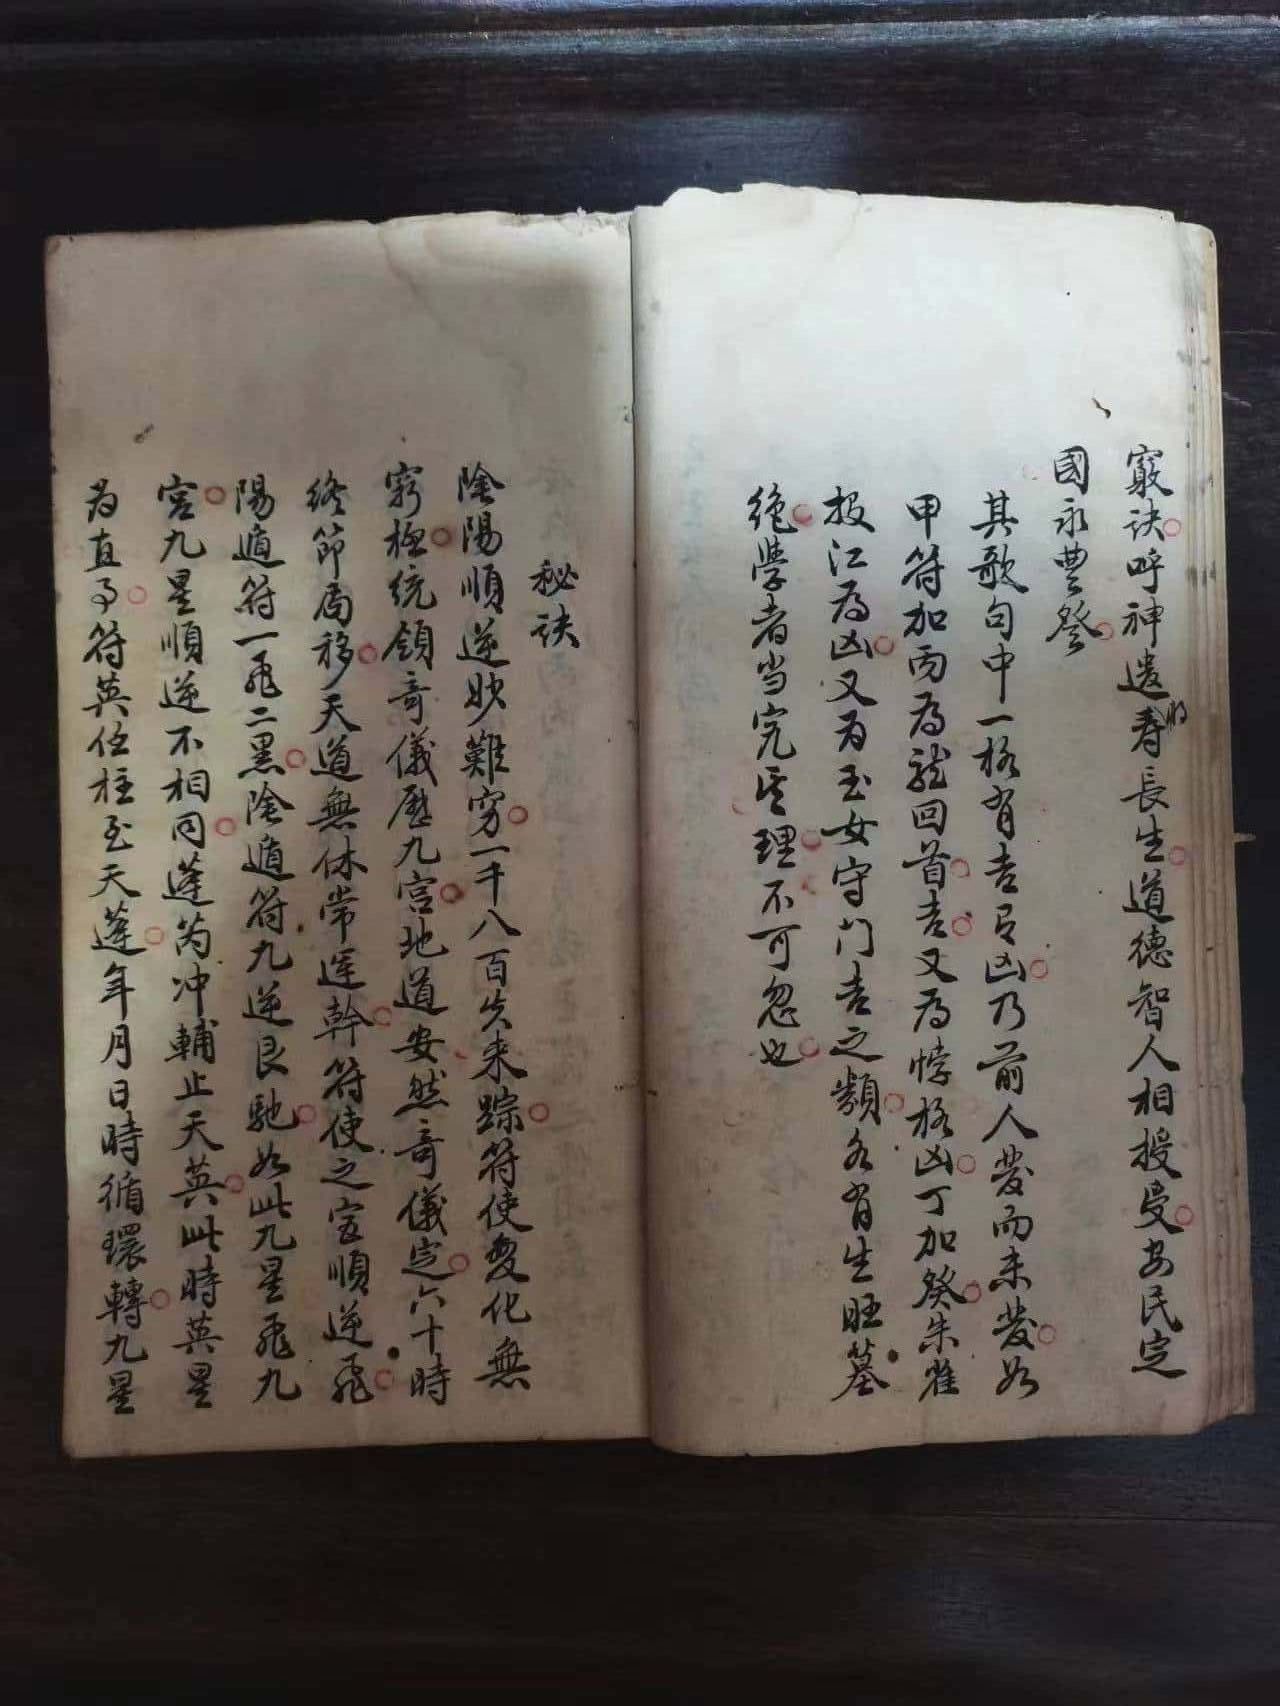 窮诀呼神遣将寿長生道德智人相授受安民定
國永豊登
其歌句中一格有吉有凶乃前人發而未發如
甲符加丙为龍回首吉又为悖格凶丁加癸朱雀
投江为凶又为玉女守门吉之類各有生旺墓
绝學者当究其理不可忽也
秘诀
陰陽順逆妙難穷一千八百失来踪符使变化無
窮極統領奇儀歷九宫地道安然奇儀定六十時
终節局移天道無休常运幹符使之宫順逆飛
陽遁符一飛二黑陰遁符九逆艮馳如此九星飛九
宮九星順逆不相同蓬芮冲輔止天英此時英星
为直事符英任柱至天蓬年月日時循環轉九星